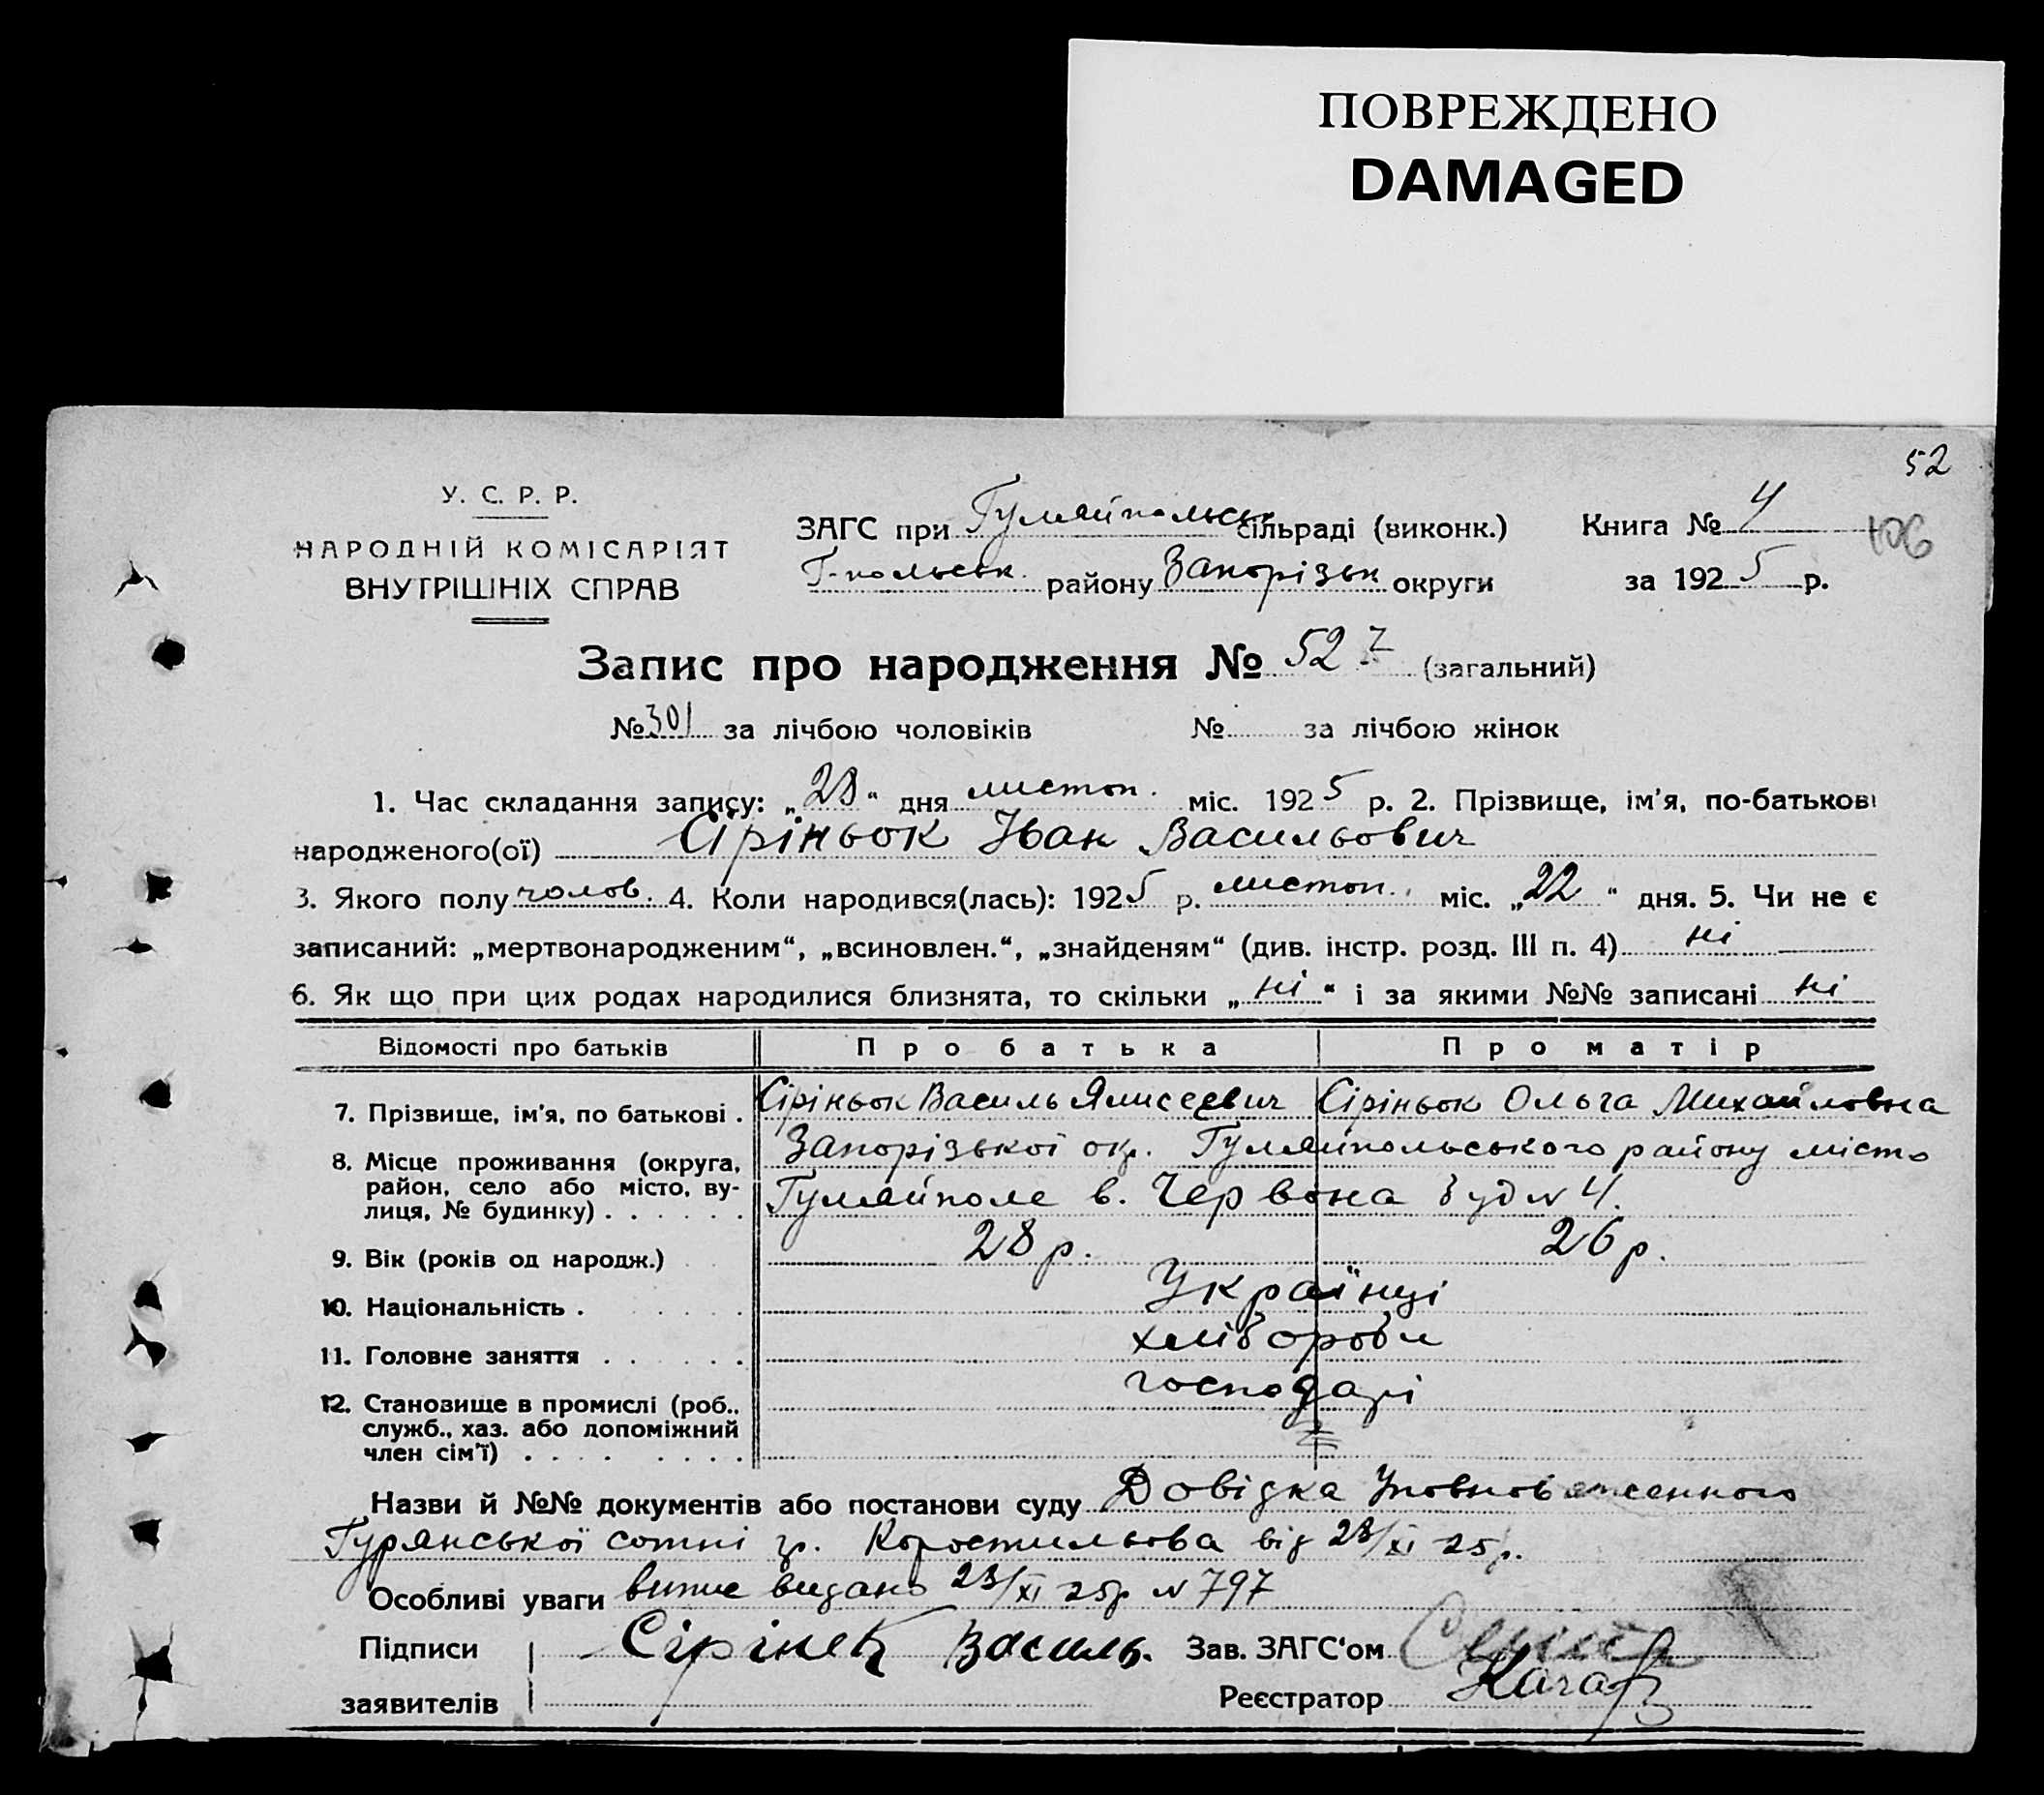 ПОВРЕЖДЕНО
DAMAGED
52
У. С. Р. Р.
НАРОДНІЙ КОМІСАРІЯТ
ВНУТРІШНІХ СПРАВ
ЗАГС при Гуляйпольськ сільраді (виконк.) Книга № 4
106
Г-польськ. району Запорізьк округи за 1925 р.
Запис про народження № 527 (загальний)
№ 301 за лічбою чоловіків № за лічбою жінок
1. Час складання запису: „28“ дня листоп. міс. 1925 р. 2. Прізвище, ім’я, по-батькові
народженого(ої) Сіріньок Іван Васильович
3. Якого полу чолов. 4. Коли народився(лась): 1925 р. листоп. міс. „22“ дня. 5. Чи не є
записаний: „мертвонародженим“, „всиновлен.“, „знайденям“ (див. інстр. розд. III п. 4) ні
6. Як що при цих родах народилися близнята, то скільки „ні“ і за якими №№ записані ні
Відомості про батьків Про батька Про матір
7. Прізвище, ім’я, по батькові . Сіріньок Василь Сіріньок Ольга Михайловна
8. Місце проживання (округа, район, село або місто, вулиця, № будинку) . . . . . . Запорізької окр. Гуляйпольського району місто
Гуляйполе в. Червона буд N 4.
9. Вік (років од народж.) 28 р. 26 р.
10. Національність . Українці
11. Головне заняття . . . . . . хлібороби
12. Становище в промислі (роб., служб., хаз. або допоміжний член сім’ї) . . . . . . . . господарі
Назви й №№ документів або постанови суду Довідка Уповноваженного
Гурянської сотні гр. Коростильова від 28/XI 25р.
Особливі уваги видано 28/XI 25р N 797
Підписи заявителів Сірінек Василь. Зав. ЗАГС‘ом
Реєстратор